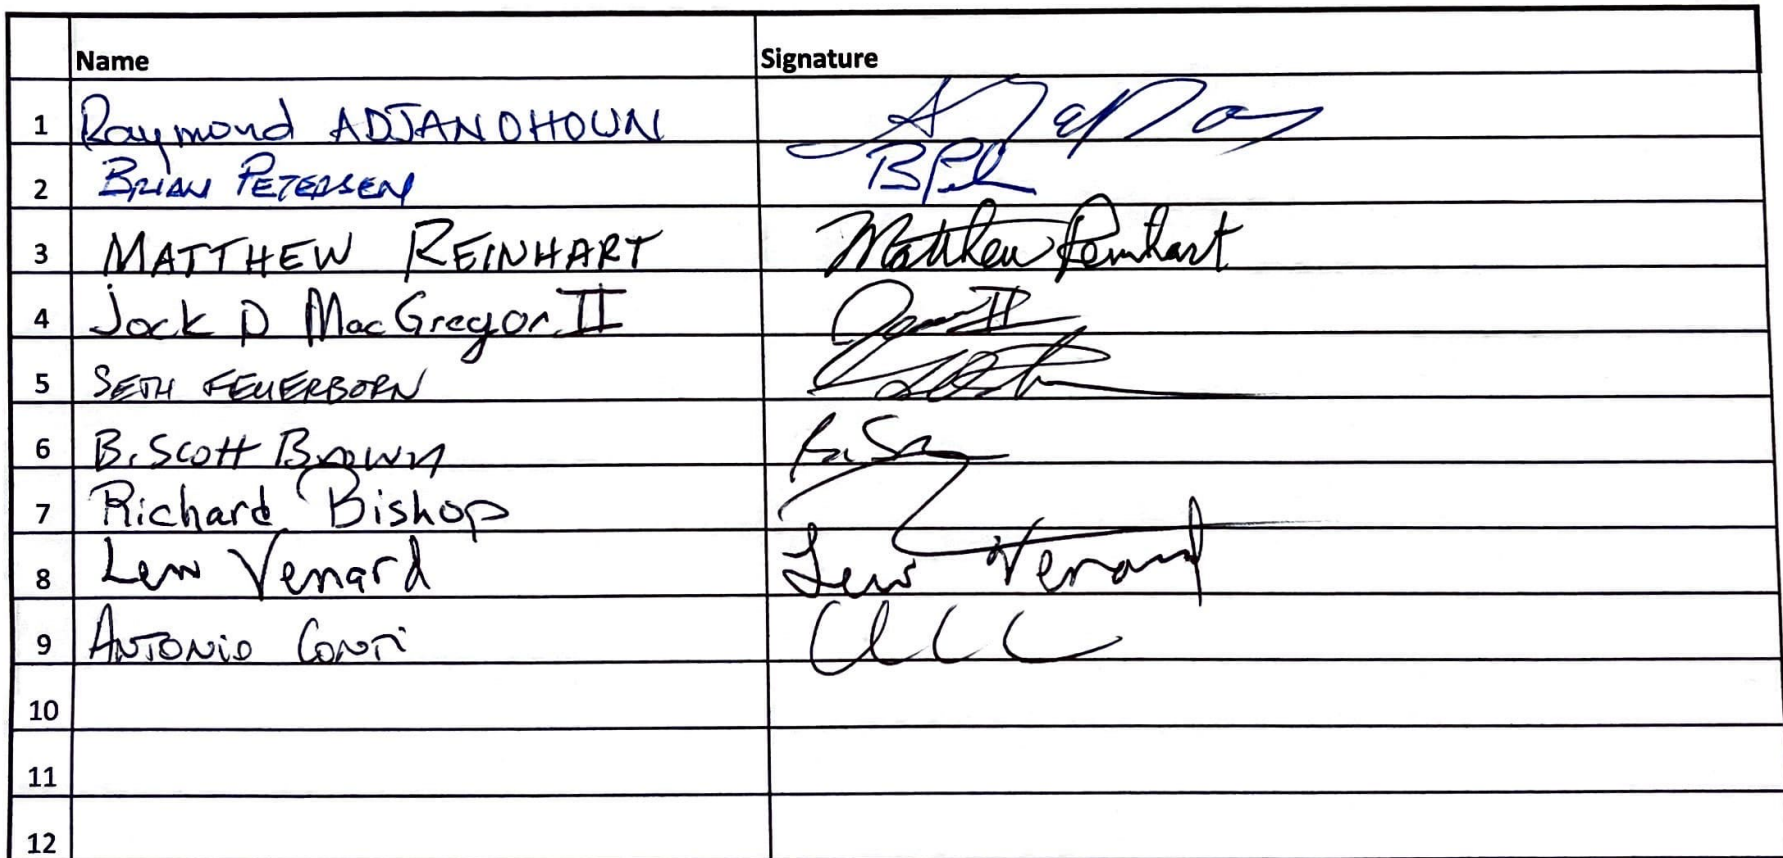 Name Signature
1 Raymond ADJANOHOUN
2 BRIAN PETERSEN
3 MATTHEW REINHART Matthew Reinhart
4 Jock D MacGregor II II
5 SETH FEUERBORN
6 B. Scott Brown
7 Richard Bishop
8 Lew Venard Lew Venard
9 ANTONIO CONTI
10
11
12